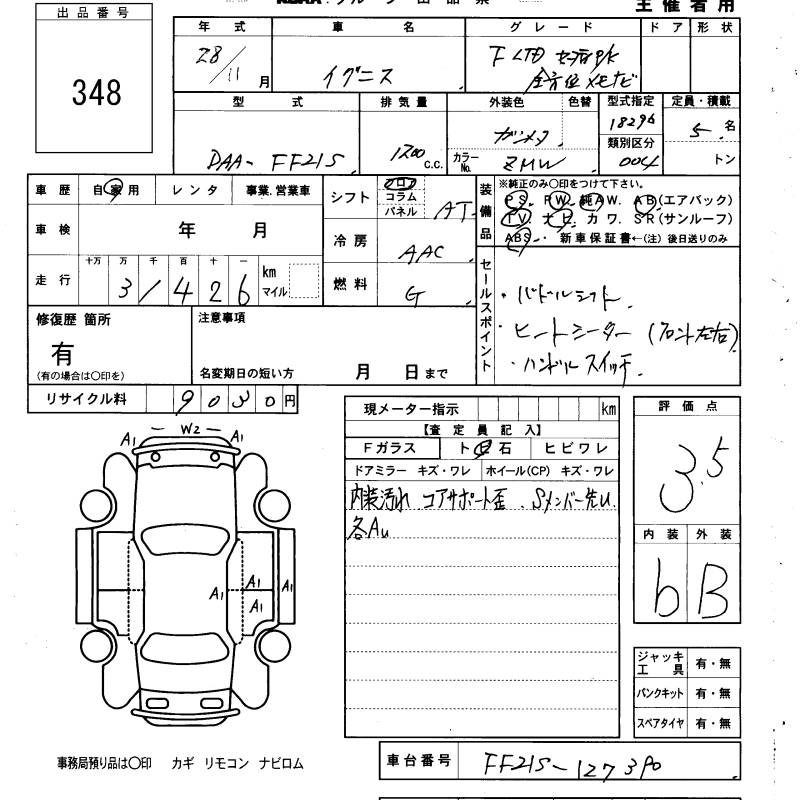 主催者用
出品番号
348
年式 車名 グレード ドア 形状
28/11月 イグニス F LTD セーフティP/K
全方位メモナビ
型式 排気量 外装色 色替 型式指定 定員・積載
DAA- FF21S 1200 c.c. ガンメタ 18296 5名
カラーNo. ZMW 類別区分 004 トン
車歴 自家用 レンタ 事業.営業車
シフト フロア コラム パネル AT
装備品 ※純正のみ〇印をつけて下さい。
PS. PW. 純AW. AB(エアバック)
TV. ナビ. カワ. SR(サンルーフ)
ABS. 新車保証書←(注) 後日送りのみ
車検 年 月
冷房 AAC
走行 十万 万 千 百 十 一 km マイル
31426
燃料 G
セールスポイント
・パドルシフト.
・ヒートシーター (フロント左右)
・ハンドルスイッチ.
修復歴 箇所
有
(有の場合は〇印を)
注意事項
名変期日の短い方 月 日まで
リサイクル料 9030円
現メーター指示 km
【査定員記入】
Fガラス ト飛石 ヒビワレ
ドアミラー キズ・ワレ ホイール(CP) キズ・ワレ
内装汚れ コアサポート歪. Sメンバー先U
各AU
評価点
3.5
内装 外装
b B
A1 W2 A1
A1 A1 A1
A1
ジャッキ 工具 有・無
パンクキット 有・無
スペアタイヤ 有・無
事務局預り品は〇印 カギ リモコン ナビロム
車台番号 FF21S-127390